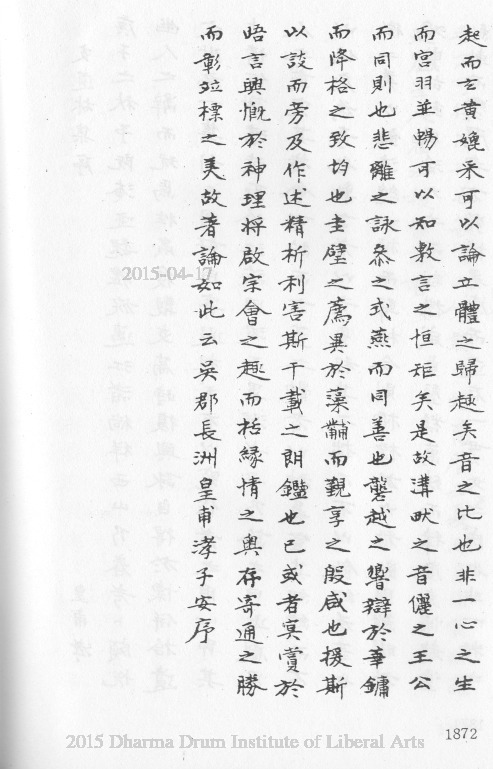 起而玄黄媲采可以論立體之歸趣矣音之比也非一心之生
而宮羽並暢可以知敷言之恒矩矣是故溝畎之音儷之王公
而同則也悲離之詠叅之式燕而同善也磬越之響辯於華鏞
而降格之致均也圭璧之薦異於藻黼而覲享之殷咸也援斯
以談而旁及作述精析利害斯千載之朗鑑也已或者冥賞於
晤言興慨於神理將啟宗會之趣而括緣情之奥存寄通之勝
而彰竝標之美故著論如此云吳郡長洲皇甫涍子安序
2015-04-17
1872
2015 Dharma Drum Institute of Liberal Arts